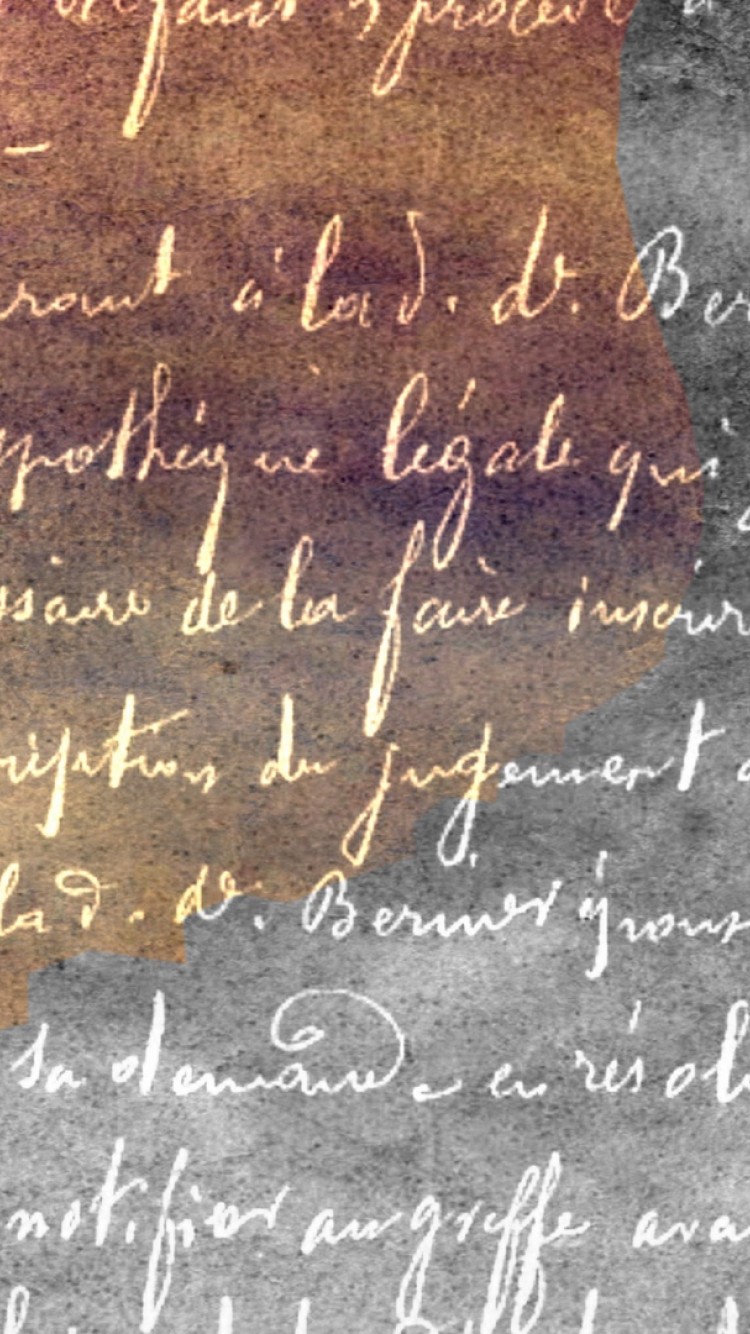 procédé à
à la d. de. Ber
hypothèque légale qui
ssaire de la faire inscrir
ription du jugement
la d. de. Bernier épouse
sa demande en résol
notifier au greffe ava